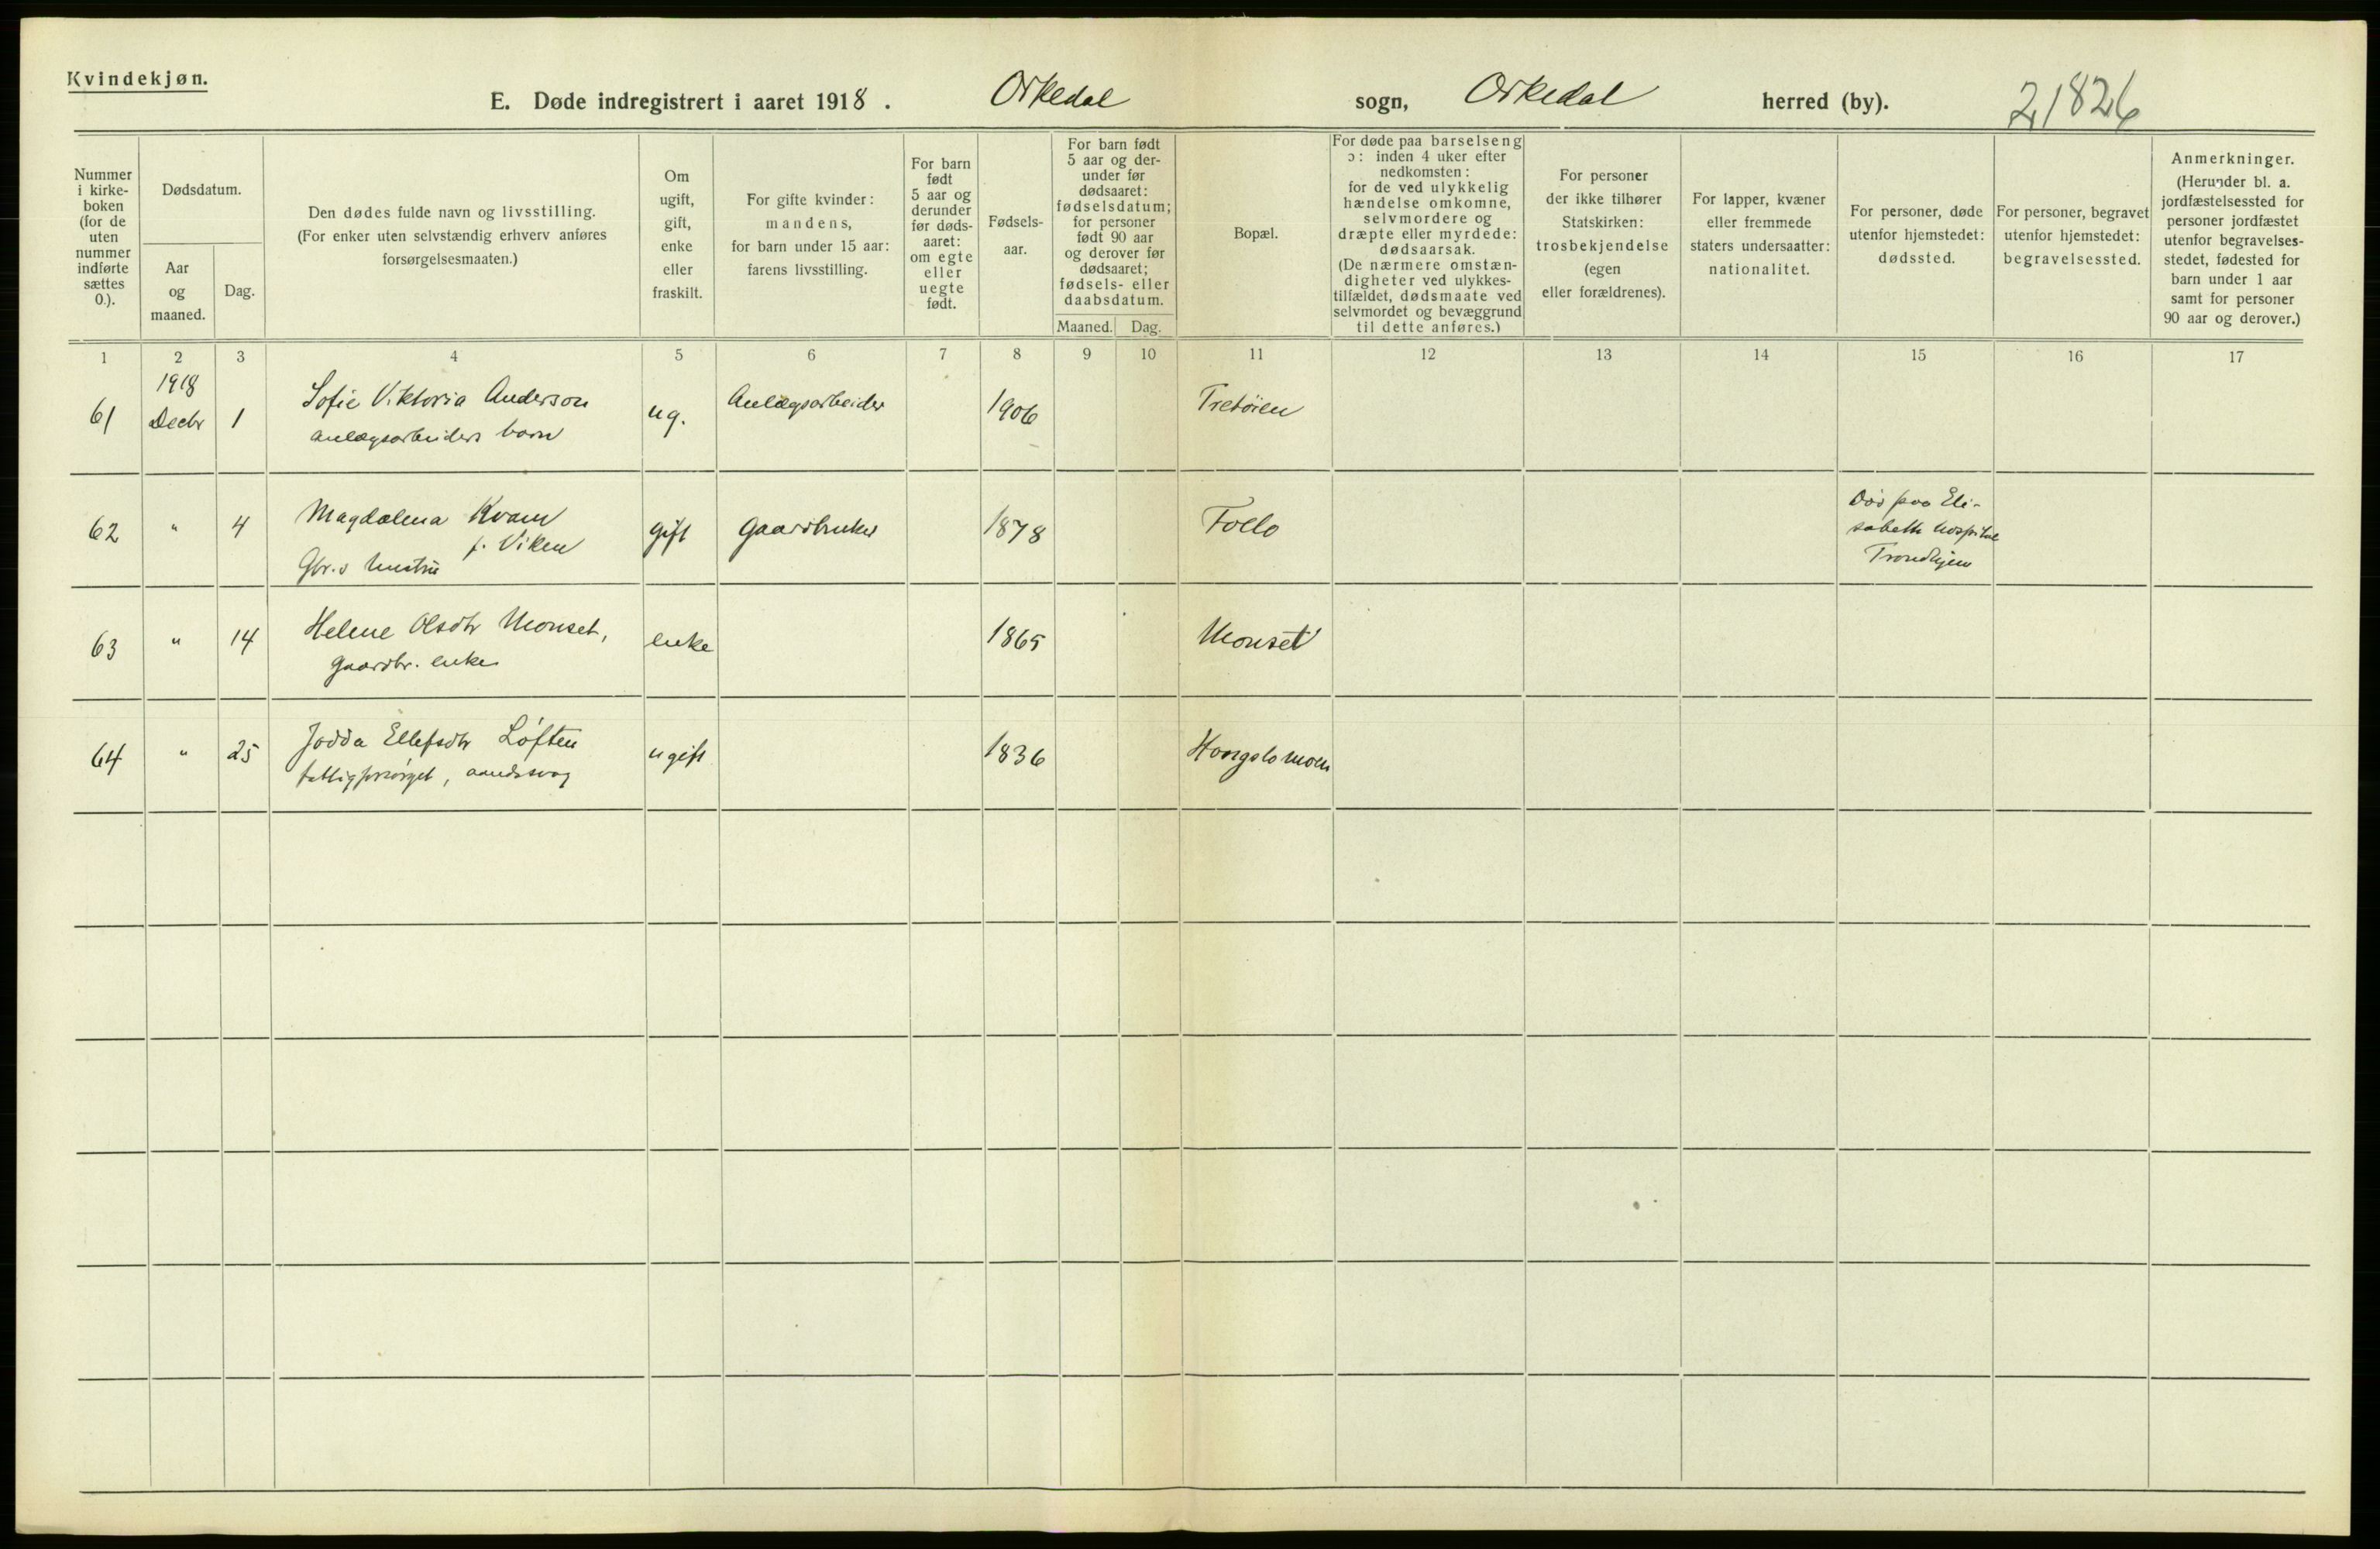 Kvindekjøn.
E. Døde indregistrert i aaret 1918. Orkedal sogn, Orkedal herred (by). 21826
Nummer
i kirke-
boken
(for de
uten
nummer
indførte
sættes
0.).
Dødsdatum.
Aar
og
maaned.
Dag.
Den dødes fulde navn og livsstilling.
(For enker uten selvstændig erhverv anføres
forsørgelsesmaaten.)
Om
ugift,
gift,
enke
eller
fraskilt.
For gifte kvinder:
mandens,
for barn under 15 aar:
farens livsstilling.
For barn
født
5 aar og
derunder
før døds-
aaret:
om egte
eller
uegte
født.
Fødsels-
aar.
For barn født
5 aar og der-
under før
dødsaaret:
fødselsdatum;
for personer
født 90 aar
og derover før
dødsaaret;
fødsels- eller
daabsdatum.
Maaned. Dag.
Bopæl.
For døde paa barselseng
ɔ: inden 4 uker efter
nedkomsten:
for de ved ulykkelig
hændelse omkomne,
selvmordere og
dræpte eller myrdede:
dødsaarsak.
(De nærmere omstæn-
digheter ved ulykkes-
tilfældet, dødsmaate ved
selvmordet og bevæggrund
til dette anføres.)
For personer
der ikke tilhører
Statskirken:
trosbekjendelse
(egen
eller forældrenes).
For lapper, kvæner
eller fremmede
staters undersaatter:
nationalitet.
For personer, døde
utenfor hjemstedet:
dødssted.
For personer, begravet
utenfor hjemstedet:
begravelsessted.
Anmerkninger.
(Herunder bl. a.
jordfæstelsessted for
personer jordfæstet
utenfor begravelses-
stedet, fødested for
barn under 1 aar
samt for personer
90 aar og derover.)
1 2 3 4 5 6 7 8 9 10 11 12 13 14 15 16 17
1918
61 Decbr 1 Sofie Viktoria Anderson ug. Anlægsarbeider 1906
anlægsarbeiders barn
62 " 4 Magdalena Kvam gift Gaardbruker 1878 Follo Død paa Eli-
f. Viken sabeth hospital
Gbr.s hustru Trondhjem
63 " 14 Helene Olsdtr Monset, enke 1865 Monset
gaardbr. enke
64 " 25 Jodda Ellefsdtr Løften ugift 1836 Hongslomoen
fattigforsørget, aandssvag